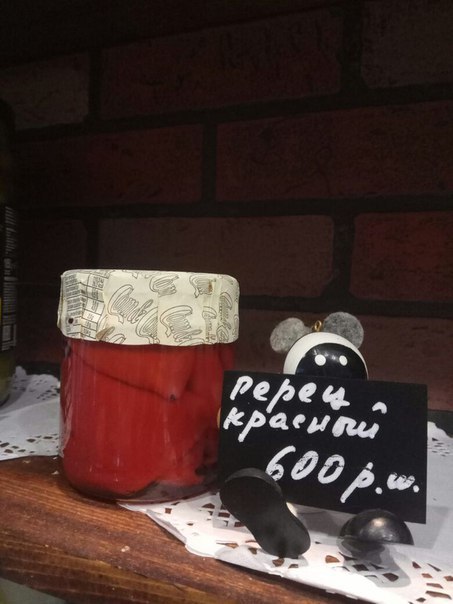 перец
красный
600 р.ш.